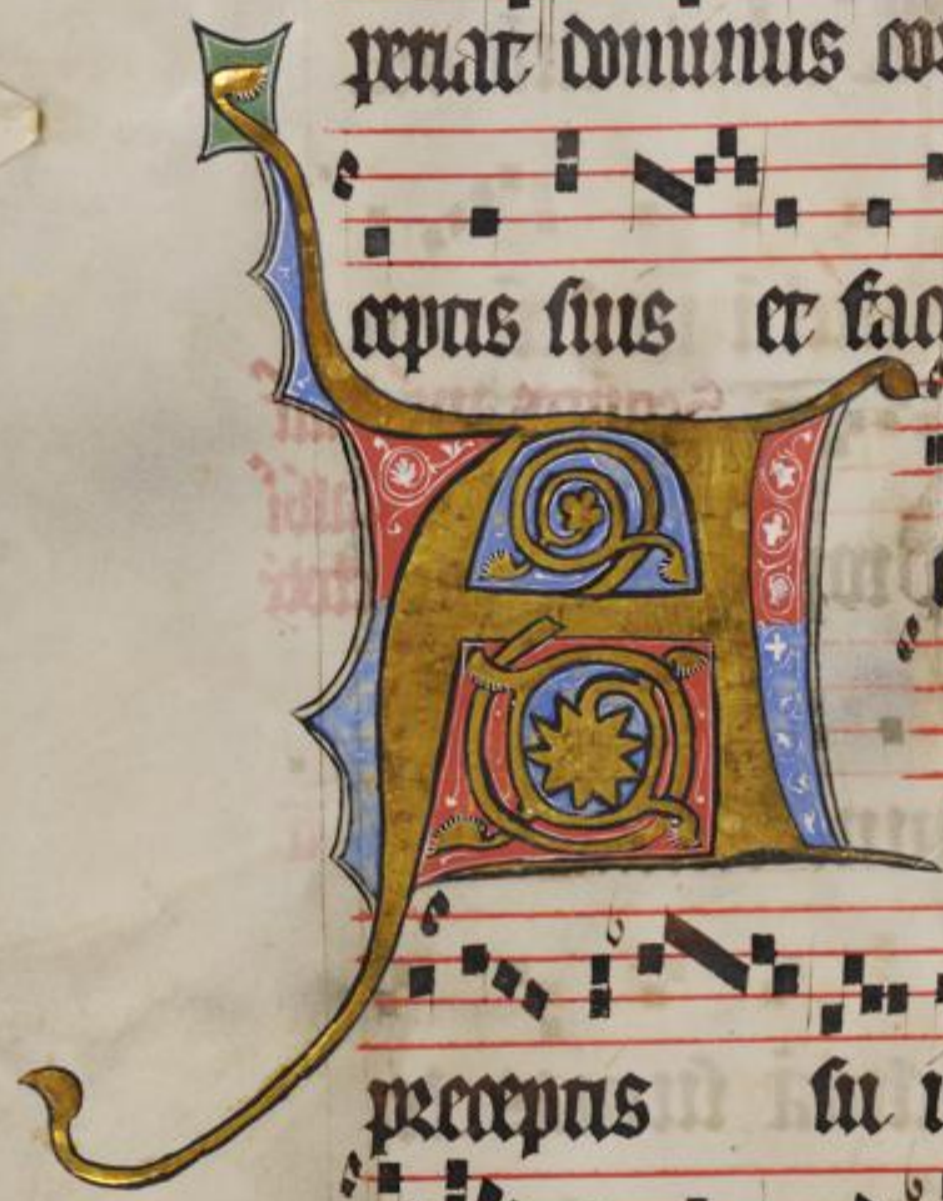 periat dominus cor
ceptis suis et fac
A
preceptis su i